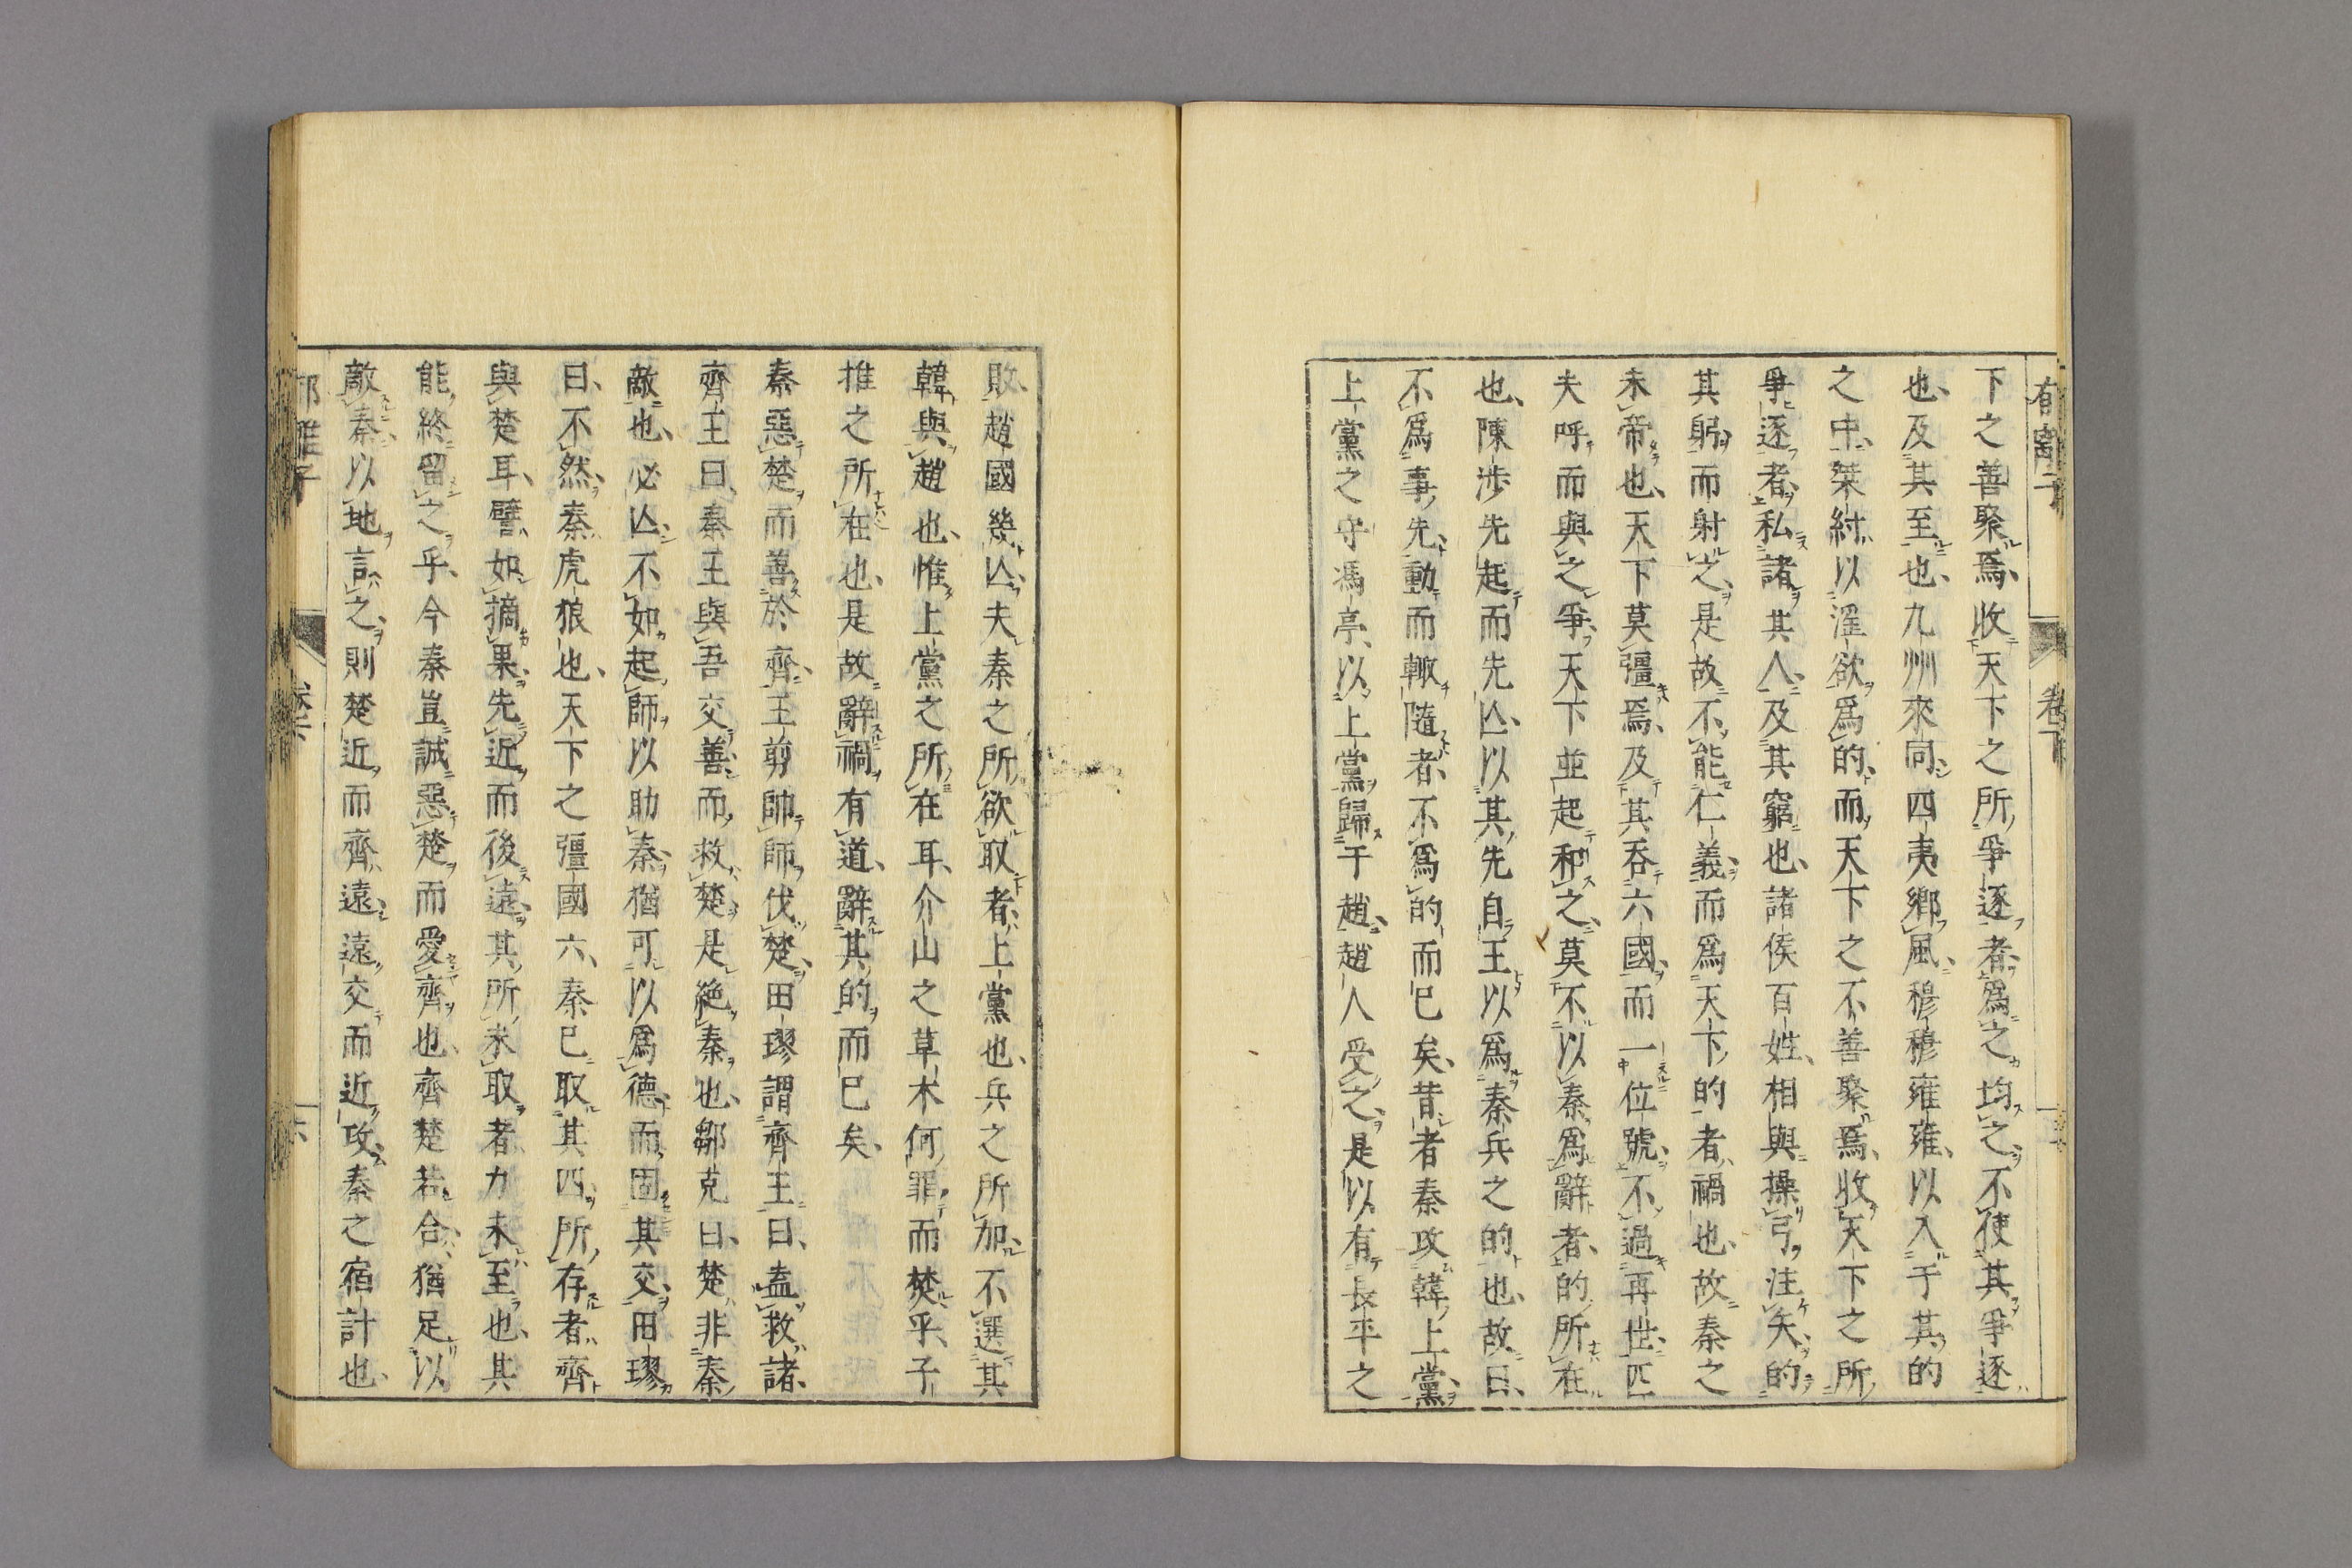 下之善聚焉收天下之所爭逐者爲之均之不使其爭逐
也及其至也九州來同四夷鄉風穆穆雍雍以入于其的
之中桀紂以淫欲爲的而天下之不善聚焉收天下之所
爭逐者私諸其人及其窮也諸侯百姓相與操弓注矢的
其躬而射之是故不能仁義而爲天下的者禍也故秦之
未帝也天下莫彊焉及其吞六國而一位號不過再世匹
夫呼而與之爭天下並起和之莫不以秦爲辭者的所在
也陳涉先起而先亾以其先自王以爲秦兵之的也故曰
不爲事先動而輙隨者不爲的而已矣昔者秦攻韓上黨
上黨之守馮亭以上黨歸于趙趙人受之是以有長平之
敗趙國幾亾夫秦之所欲取者上黨也兵之所加不選其
韓與趙也惟上黨之所在耳介山之草木何罪而焚乎子
推之所在也是故辭禍有道辭其的而已矣
秦惡楚而善於齊王剪帥師伐楚田璆謂齊王曰盍救諸
齊王曰秦王與吾交善而救楚是絶秦也鄒克曰楚非秦
敵也必亾不如起師以助秦猶可以爲德而固其交田璆
曰不然秦虎狼也天下之彊國六秦已取其四所存者齊
與楚耳譬如摘果先近而後遠其所未取者力未至也其
能終留之乎今秦豈誠惡楚而愛齊也齊楚若合猶足以
敵秦以地言之則楚近而齊遠遠交而近攻秦之宿計也